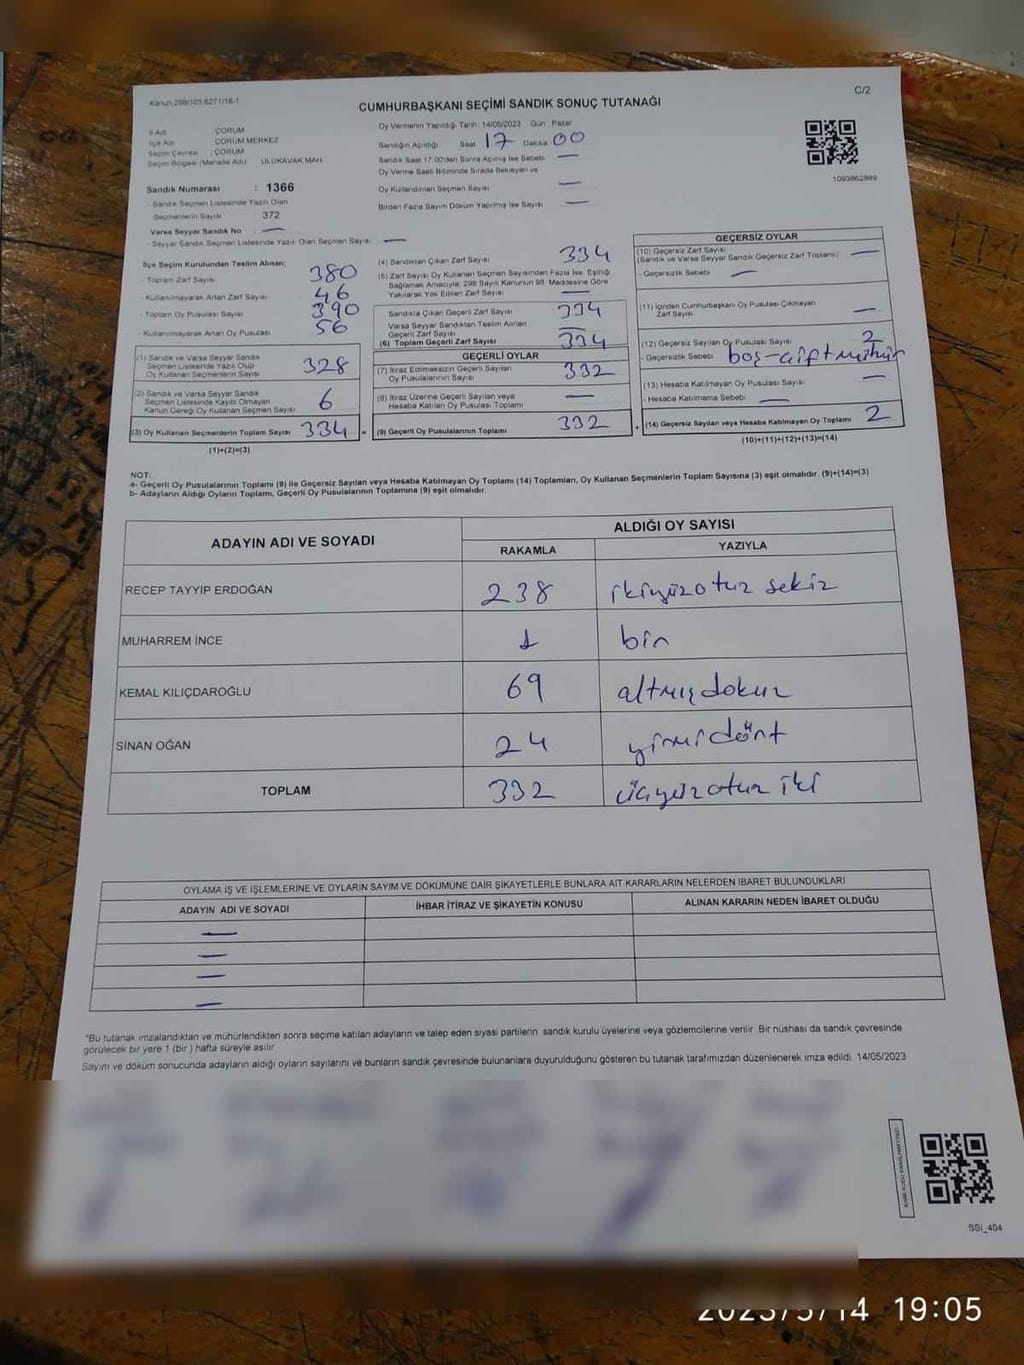 Kanun:298/105.6271/18-1
C/2
CUMHURBAŞKANI SEÇİMİ SANDIK SONUÇ TUTANAĞI
İl Adı : ÇORUM
İlçe Adı : ÇORUM MERKEZ
Seçim Çevresi : ÇORUM
Seçim Bölgesi (Mahalle Adı) ULUKAVAK MAH
Sandık Numarası : 1366
- Sandık Seçmen Listesinde Yazılı Olan
Seçmenlerin Sayısı : 372
Varsa Seyyar Sandık No : —
- Seyyar Sandık Seçmen Listesinde Yazılı Olan Seçmen Sayısı : —
Oy Vermenin Yapıldığı Tarih :14/05/2023 Gün : Pazar
Sandığın Açıldığı Saat 17 Dakika 00
Sandık Saat 17:00'den Sonra Açılmış İse Sebebi —
Oy Verme Saati Bitiminde Sırada Bekleyen ve
Oy Kullandırılan Seçmen Sayısı —
Birden Fazla Sayım Döküm Yapılmış İse Sayısı —
1093862889
İlçe Seçim Kurulundan Teslim Alınan;
- Toplam Zarf Sayısı 380
- Kullanılmayarak Artan Zarf Sayısı 46
- Toplam Oy Pusulası Sayısı 390
- Kullanılmayarak Artan Oy Pusulası 56
(1) Sandık ve Varsa Seyyar Sandık
Seçmen Listesinde Yazılı Olup
Oy Kullanan Seçmenlerin Sayısı 328
(2) Sandık ve Varsa Seyyar Sandık
Seçmen Listesinde Kayıtlı Olmayan
Kanun Gereği Oy Kullanan Seçmen Sayısı 6
(3) Oy Kullanan Seçmenlerin Toplam Sayısı 334 =
(1)+(2)=(3)
(4) Sandıktan Çıkan Zarf Sayısı 334
(5) Zarf Sayısı Oy Kullanan Seçmen Sayısından Fazla İse, Eşitliği
Sağlamak Amacıyla, 298 Sayılı Kanunun 98. Maddesine Göre
Yakılarak Yok Edilen Zarf Sayısı —
Sandıkta Çıkan Geçerli Zarf Sayısı 334
Varsa Seyyar Sandıktan Teslim Alınan
Geçerli Zarf Sayısı —
(6) Toplam Geçerli Zarf Sayısı 334
GEÇERLİ OYLAR
(7) İtiraz Edilmeksizin Geçerli Sayılan
Oy Pusulalarının Sayısı 332
(8) İtiraz Üzerine Geçerli Sayılan veya
Hesaba Katılan Oy Pusulası Toplamı —
(9) Geçerli Oy Pusulalarının Toplamı 332
GEÇERSİZ OYLAR
(10) Geçersiz Zarf Sayısı
(Sandık ve Varsa Seyyar Sandık Geçersiz Zarf Toplamı) —
- Geçersizlik Sebebi : —
(11) İçinden Cumhurbaşkanı Oy Pusulası Çıkmayan
Zarf Sayısı —
(12) Geçersiz Sayılan Oy Pusulası Sayısı 2
- Geçersizlik Sebebi : boş-çift mühür
(13) Hesaba Katılmayan Oy Pusulası Sayısı —
- Hesaba Katılmama Sebebi: —
(14) Geçersiz Sayılan veya Hesaba Katılmayan Oy Toplamı 2
(10)+(11)+(12)+(13)=(14)
NOT:
a- Geçerli Oy Pusulalarının Toplamı (9) ile Geçersiz Sayılan veya Hesaba Katılmayan Oy Toplamı (14) Toplamları, Oy Kullanan Seçmenlerin Toplam Sayısına (3) eşit olmalıdır. (9)+(14)=(3)
b- Adayların Aldığı Oyların Toplamı, Geçerli Oy Pusulalarının Toplamına (9) eşit olmalıdır.
ADAYIN ADI VE SOYADI
ALDIĞI OY SAYISI
RAKAMLA YAZIYLA
RECEP TAYYİP ERDOĞAN 238 ikiyüzotuz sekiz
MUHARREM İNCE 1 bir
KEMAL KILIÇDAROĞLU 69 altmışdokuz
SİNAN OĞAN 24 yirmidört
TOPLAM 332 üçyüzotuz iki
OYLAMA İŞ VE İŞLEMLERİNE VE OYLARIN SAYIM VE DÖKÜMÜNE DAİR ŞİKAYETLERLE BUNLARA AİT KARARLARIN NELERDEN İBARET BULUNDUKLARI
ADAYIN ADI VE SOYADI İHBAR İTİRAZ VE ŞİKAYETİN KONUSU ALINAN KARARIN NEDEN İBARET OLDUĞU
—
—
—
—
"Bu tutanak imzalandıktan ve mühürlendikten sonra seçime katılan adayların ve talep eden siyasi partilerin sandık kurulu üyelerine veya gözlemcilerine verilir. Bir nüshası da sandık çevresinde
görülecek bir yere 1 (bir ) hafta süreyle asılır.
Sayım ve döküm sonucunda adayların aldığı oyların sayılarını ve bunların sandık çevresinde bulunanlara duyurulduğunu gösteren bu tutanak tarafımızdan düzenlenerek imza edildi. 14/05/2023
SSI_404
2023/5/14 19:05